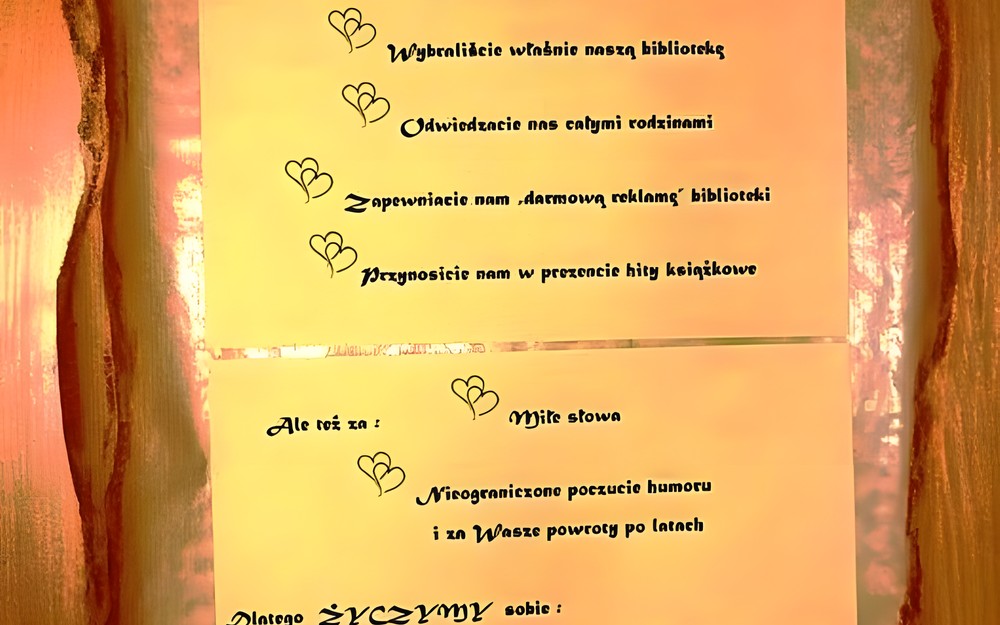 Wybraliście właśnie naszą bibliotekę
Odwiedzacie nas całymi rodzinami
Zapewniacie nam „darmową reklamę” biblioteki
Przynosicie nam w prezencie hity książkowe
Ale też za :
Miłe słowa
Nieograniczone poczucie humoru
i za Wasze powroty po latach
Dlatego ŻYCZYMY sobie :